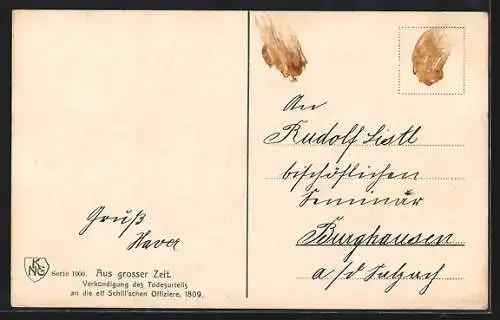 An
Rudolf Listl
bischöflichen
Seminär
Burghausen
a/d Salzach
Gruß
Xaver
KNG
Serie 1900. Aus grosser Zeit.
Verkündigung des Todesurteils
an die elf Schill'schen Offiziere, 1809.